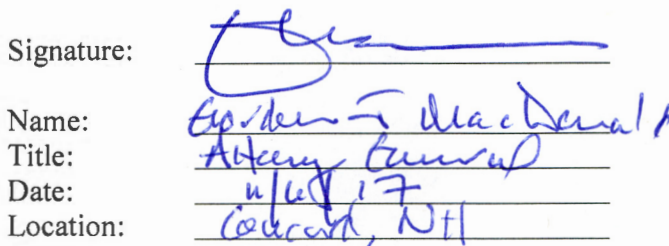 Signature:
Name: Gordon J MacDonald
Title: Attorney General
Date:
Location: Concord, NH